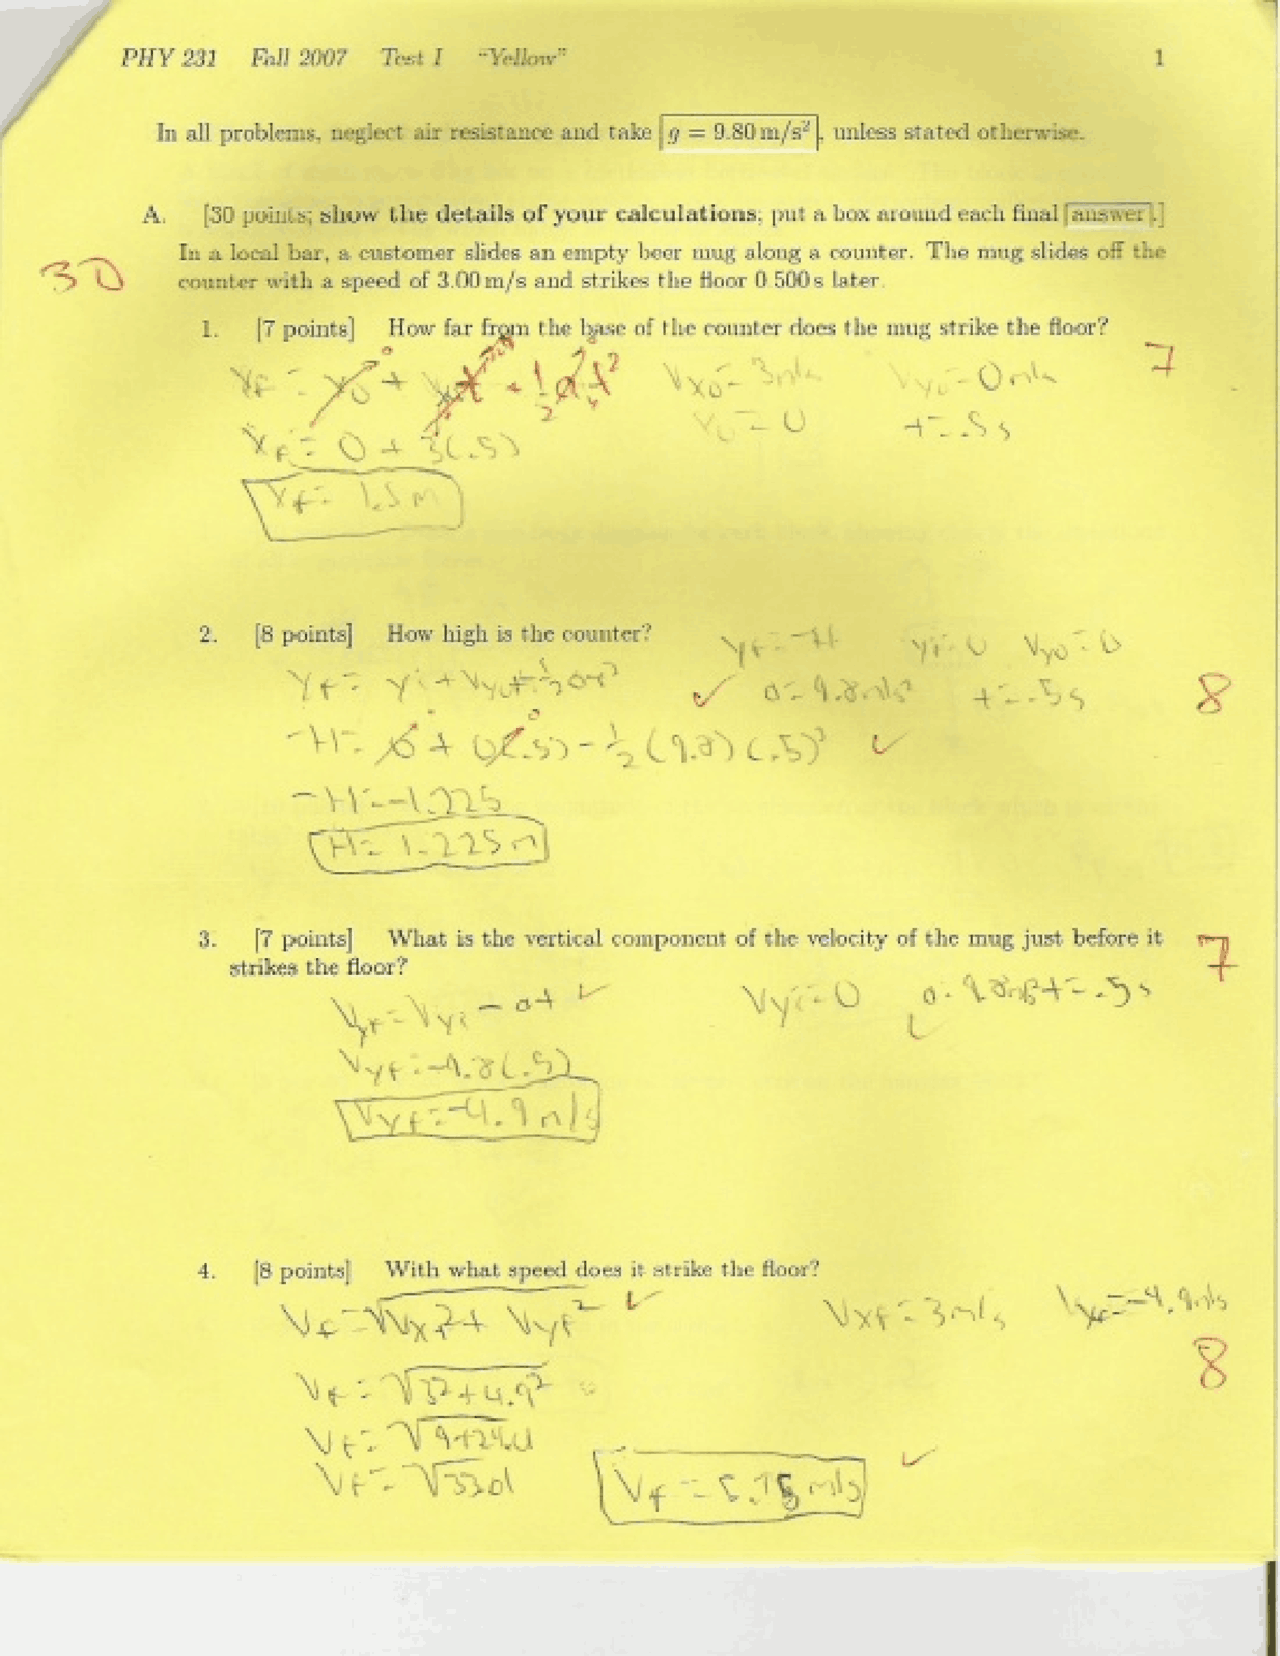 PHY 231 Fall 2007 Test I "Yellow" 1
In all problems, neglect air resistance and take g = 9.80 m/s², unless stated otherwise.
A. [30 points; show the details of your calculations; put a box around each final answer.]
30
In a local bar, a customer slides an empty beer mug along a counter. The mug slides off the
counter with a speed of 3.00 m/s and strikes the floor 0.500 s later.
1. [7 points] How far from the base of the counter does the mug strike the floor?
7
Vxo = 3m/s Vyo = 0m/s
xf = 0 + 3(.5) t = .5s
xf = 1.5m
2. [8 points] How high is the counter?
yf = -H yi = 0 Vyo = 0
yf = yi + Vyot + ½at² a = 9.8m/s² t = .5s 8
-H = 0 + 0(.5) - ½(9.8)(.5)²
-H = -1.225
H = 1.225m
3. [7 points] What is the vertical component of the velocity of the mug just before it
strikes the floor?
7
Vyf = Vyi - at Vyi = 0 t = .5s
Vyf = -9.8(.5)
Vyf = -4.9m/s
4. [8 points] With what speed does it strike the floor?
Vf = √Vxf² + Vyf² Vxf = 3m/s = -4.9m/s
8
Vf = √3² + 4.9²
Vf = √9+24.01
Vf = √33.01 Vf = 5.75 m/s